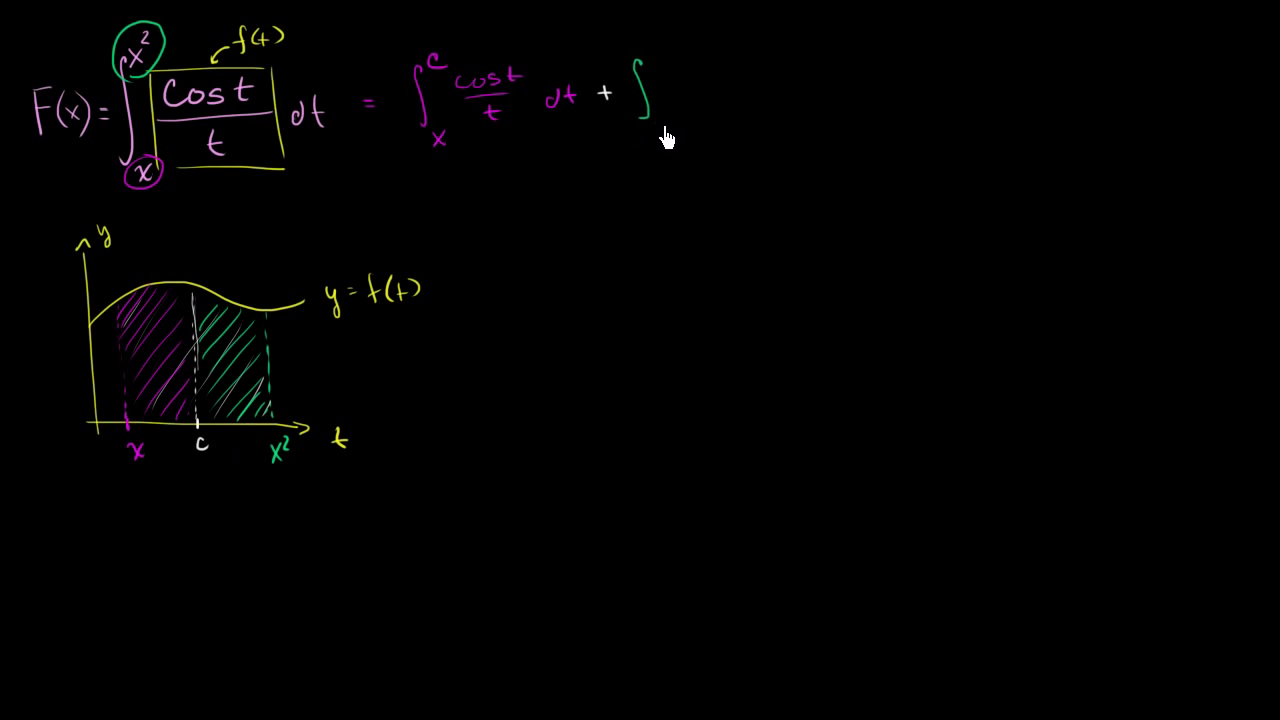 f(t)
F(x) = ∫_x^{x²} cos t / t dt = ∫_x^c cos t / t dt + ∫
y
y = f(t)
x c x² t